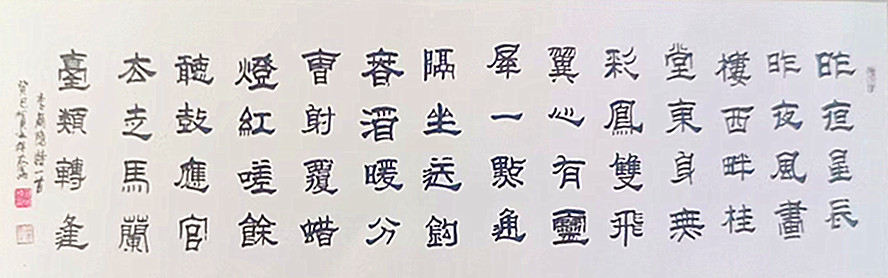 昨夜星辰
昨夜風畫
樓西畔桂
堂東身無
彩鳳雙飛
翼心有靈
犀一點通
隔坐送鈎
春酒暖分
曹射覆蜡
燈紅嗟餘
聽鼓應官
去走馬蘭
臺類轉逢
李商隱詩一首
癸巳